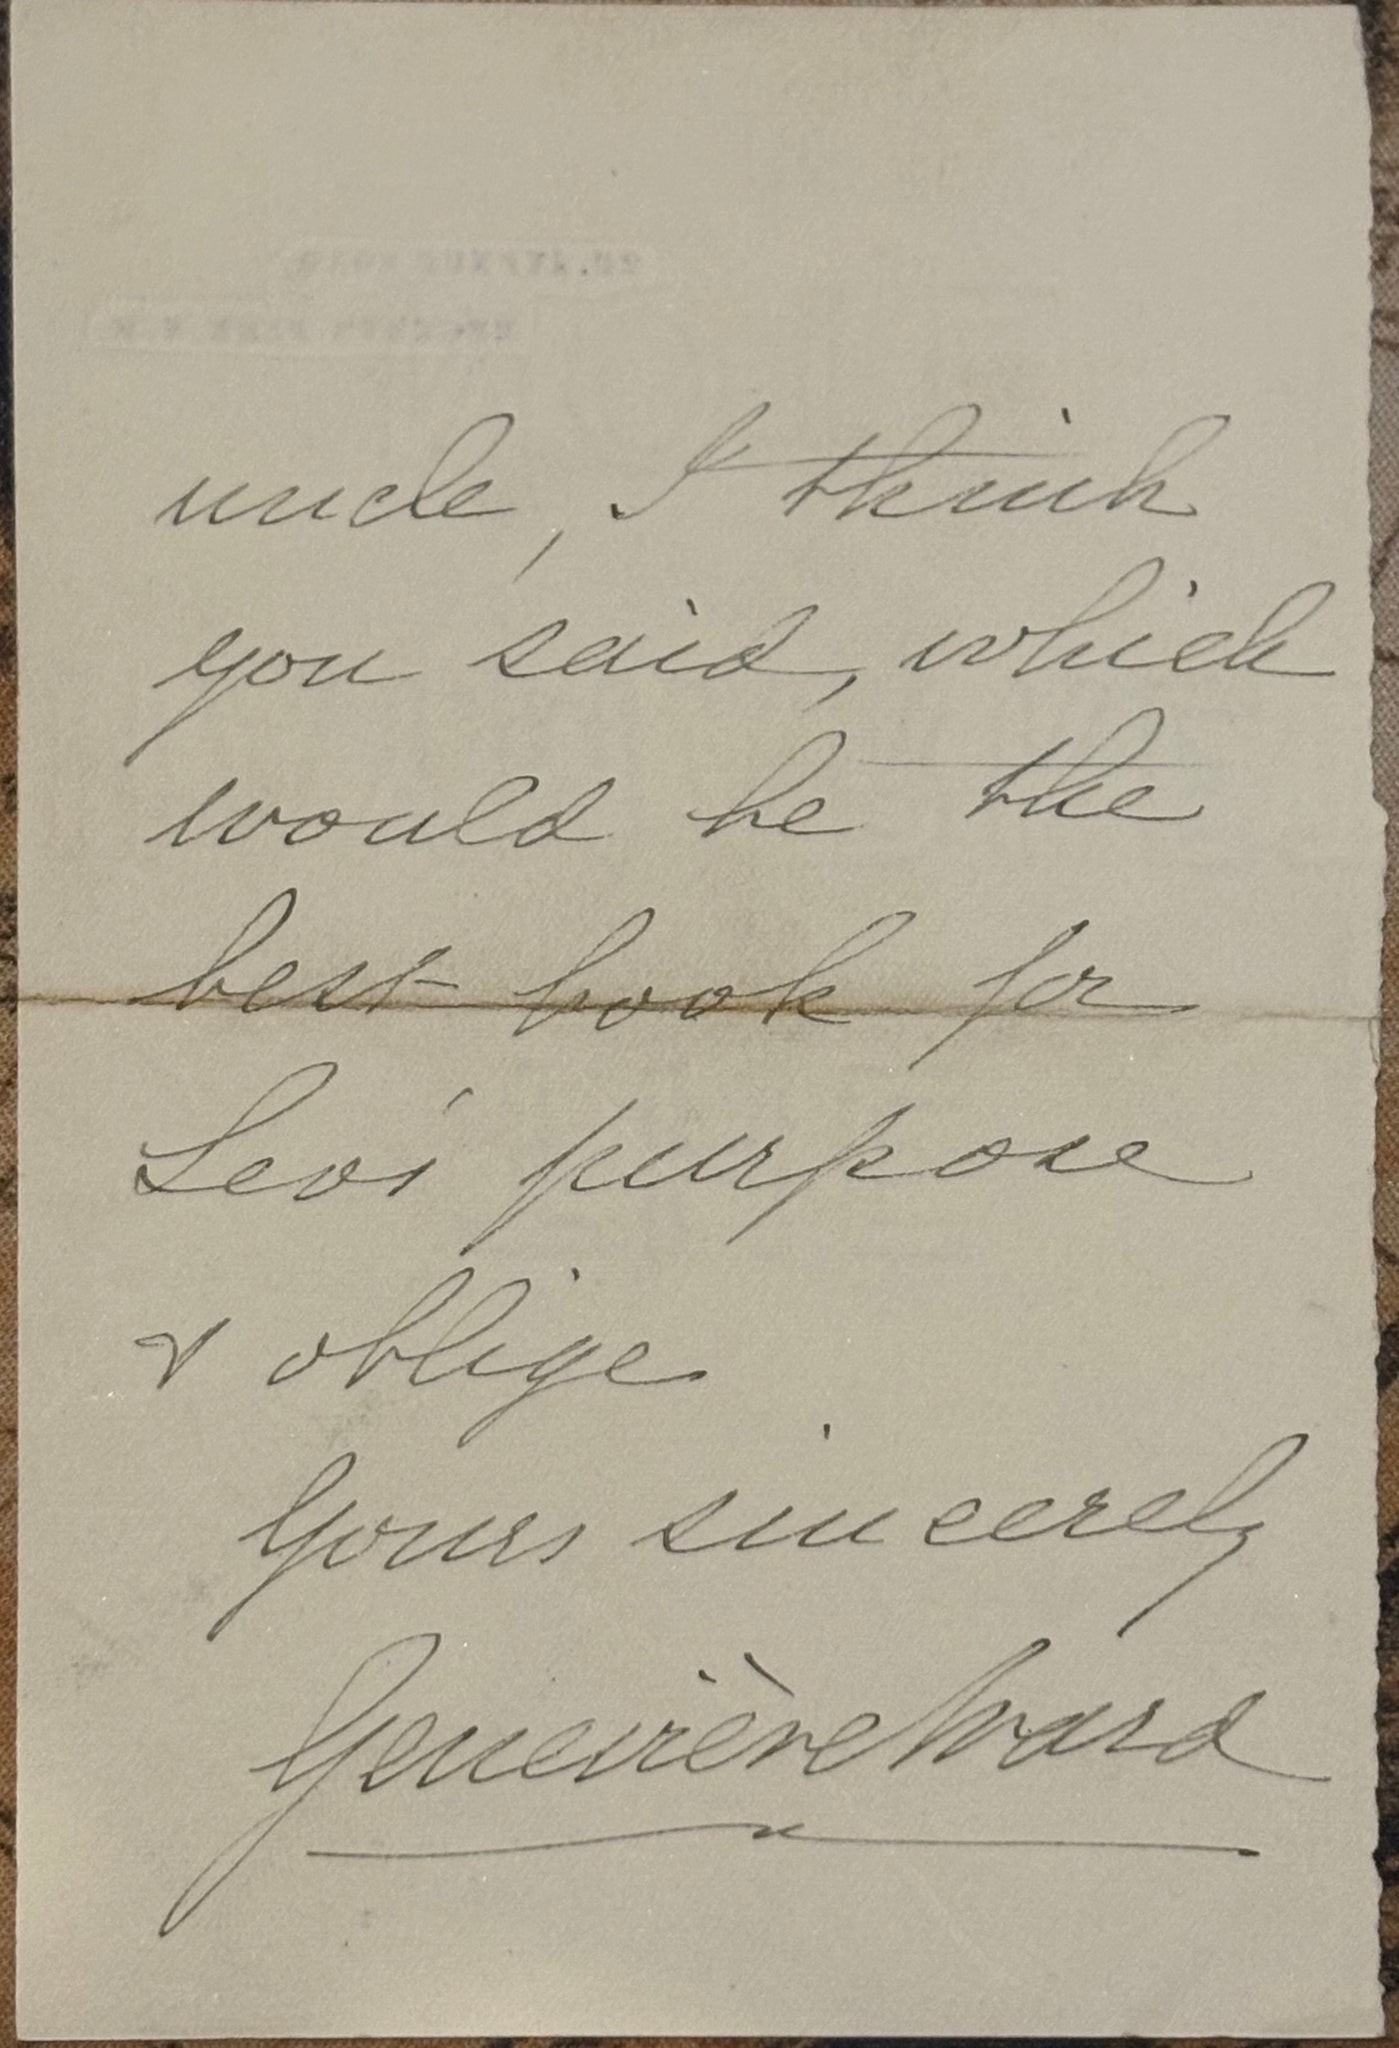 uncle, I think
you said, which
would be the
best book for
Leo's purpose
& oblige
Yours sincerely
Geneviève Ward